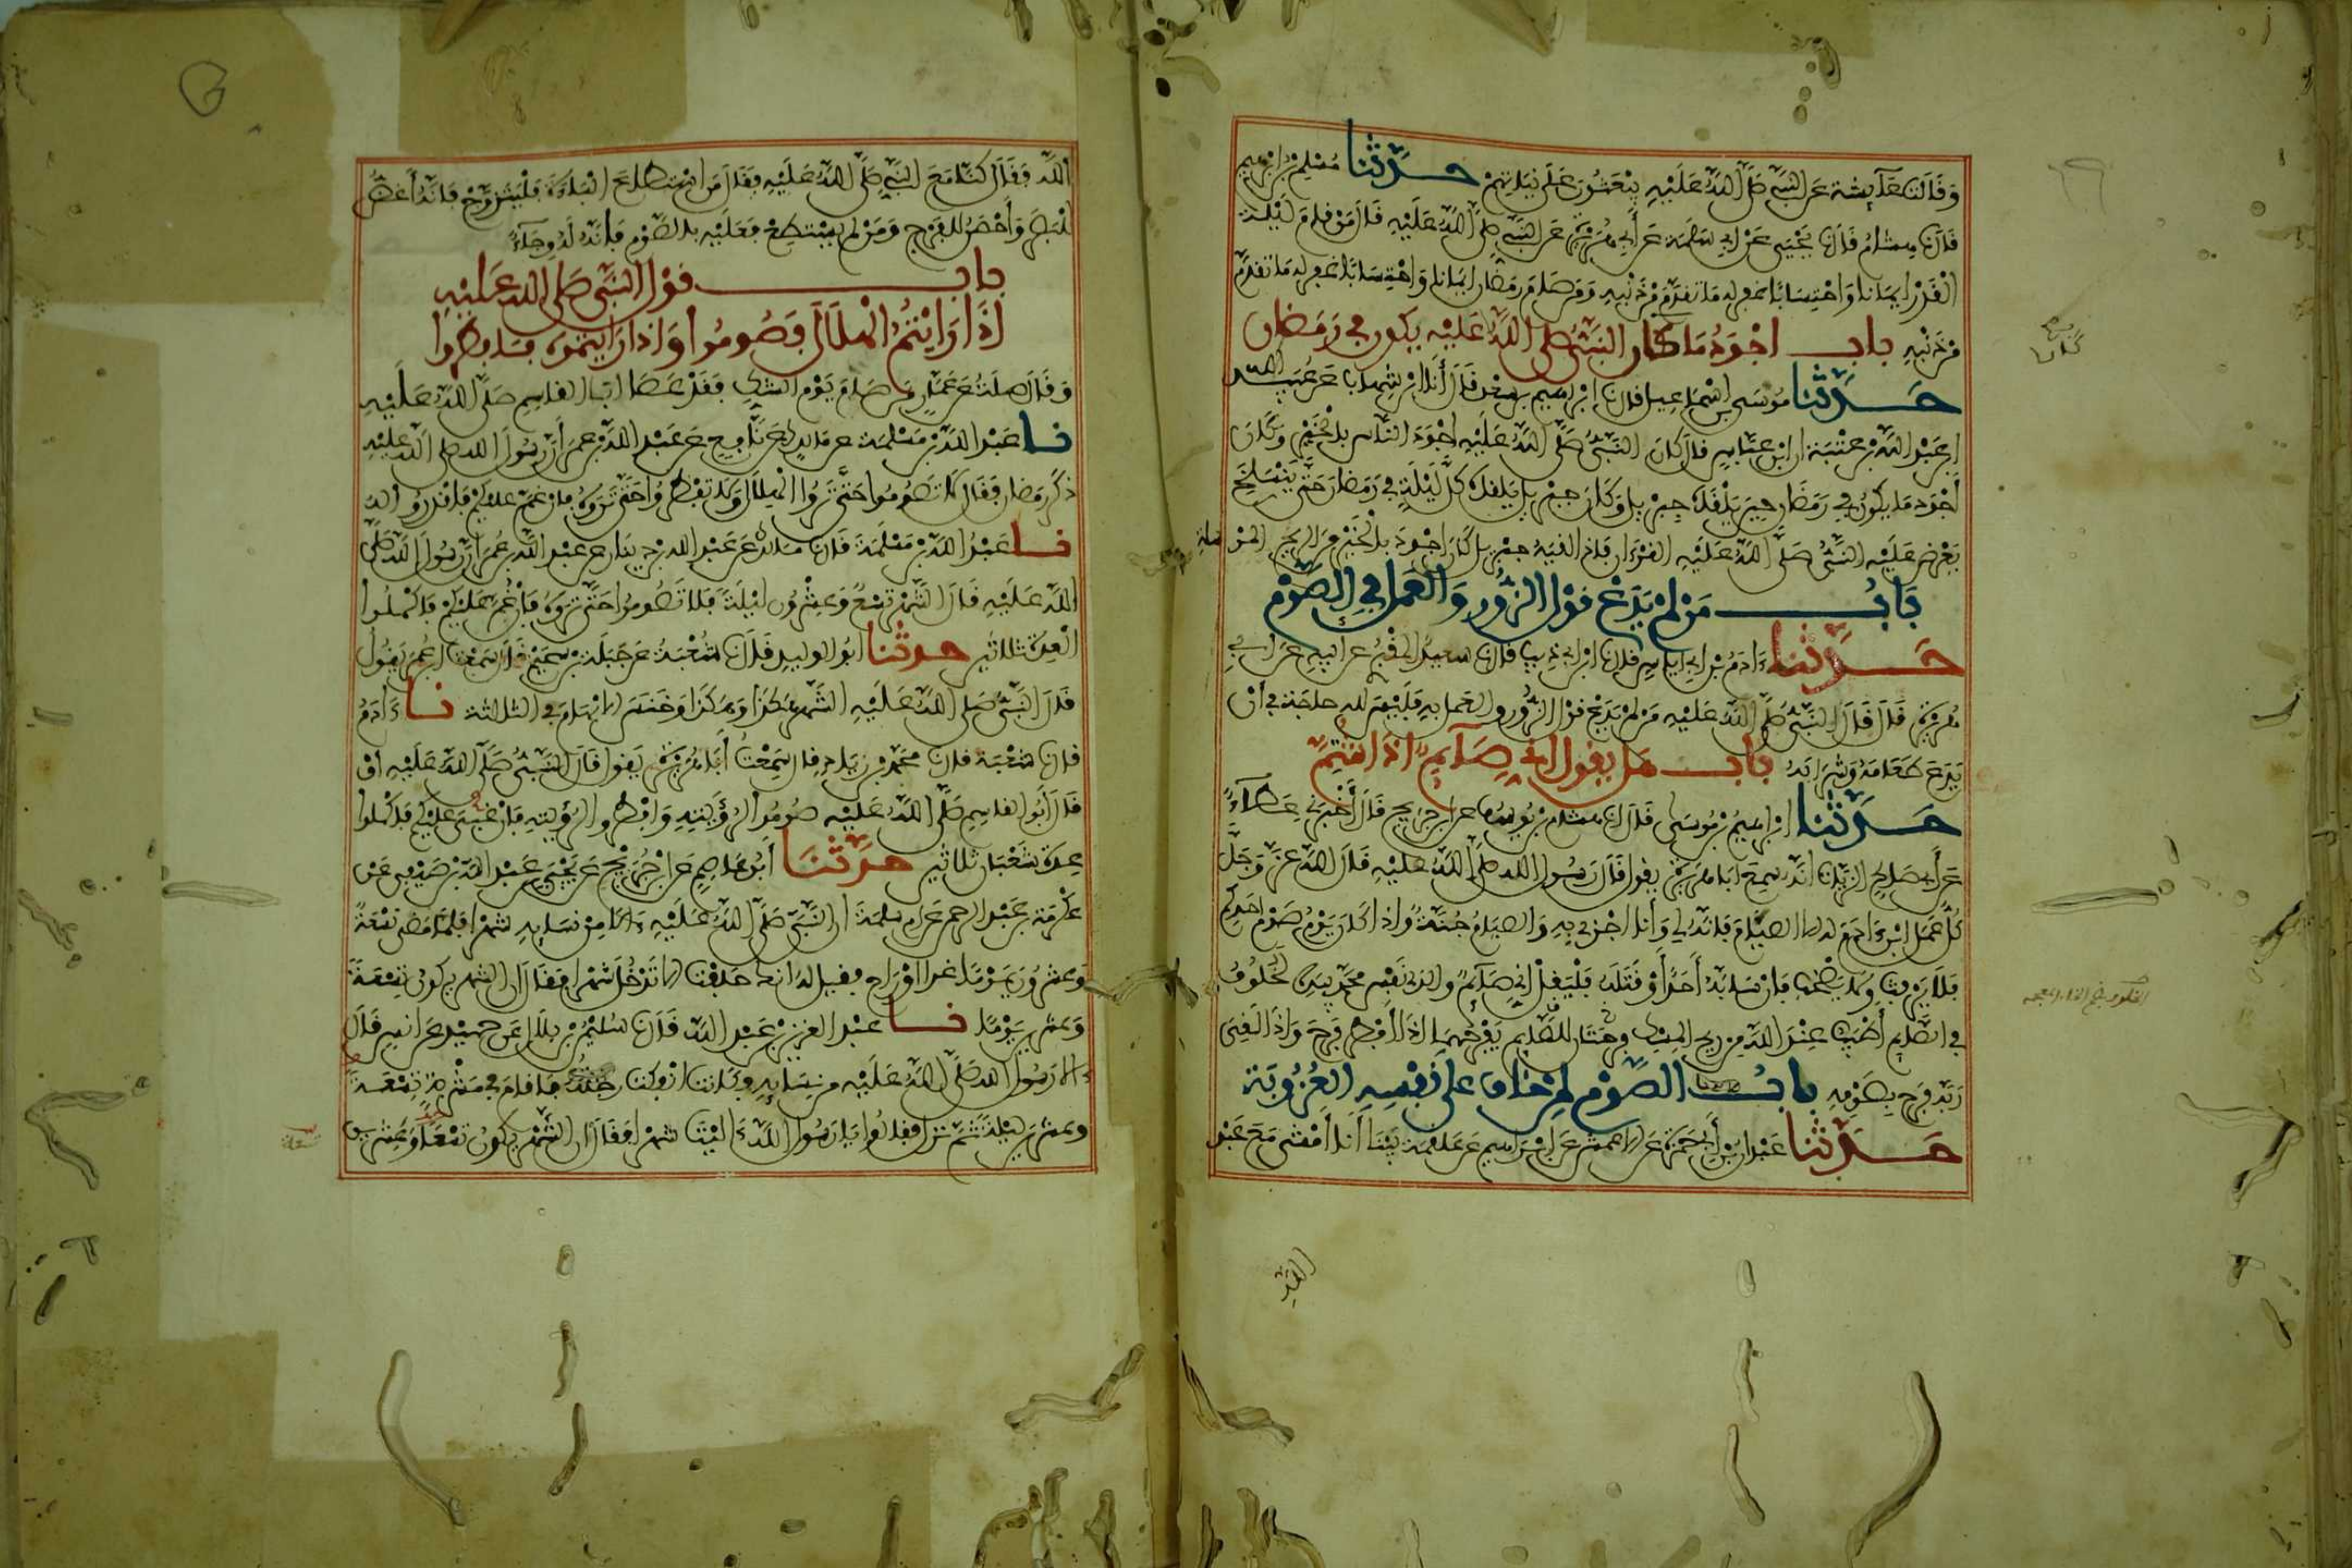 وقالت عائشة عن النبي صلى الله عليه يبعثون على نياتهم حدثنا مسلم بن ابرهيم
قال نا هشام قال نا يحيى عن ابي سلمة عن أبي هريرة عن النبي صلى الله عليه قال من قام ليلة
القدر ايمانا واحتسابا غفر له ما تقدم من ذنبه ومن صام رمضان ايمانا واحتسابا غفر له ما تقدم
من ذنبه باب اجود ما كان النبي صلى الله عليه يكون في رمضان
حدثنا موسى بن اسماعيل قال نا ابرهيم بن سعد قال أنا ابن شهاب عن عبيد الله
ابن عبد الله بن عتبة ان ابن عباس قال كان النبي صلى الله عليه اجود الناس بالخير وكان
أجود ما يكون في رمضان حين يلقاه جبريل وكان جبريل يلقاه كل ليلة في رمضان حتى ينسلخ
يعرض عليه النبي صلى الله عليه القرءان فاذا لقيه جبريل كان اجود بالخير من الريح المرسلة
باب من لم يدع قول الزور والعمل في الصوم
حدثنا ءادم بن ابي اياس قال نا ابن ابي ذيب قال نا سعيد المقبري عن ابيه عن ابي
هريرة قال قال النبي صلى الله عليه من لم يدع قول الزور والعمل به فليس لله حاجة في أن
يدع طعامه وشرابه باب هل يقول اني صائم اذا شتم
حدثنا ابرهيم بن موسى قال نا هشام بن يوسف عن ابن جريج قال أخبرني عطاء
عن أبي صالح الزيات انه سمع ابا هريرة يقول قال رسول الله صلى الله عليه قال الله عز وجل
كل عمل ابن ءادم له الا الصيام فانه لي وأنا اجزي به والصيام جنة واذا كان يوم صوم احدكم
فلا يرفث ولا يصخب فان سابه أحد أو قاتله فليقل اني صائم والذي نفس محمد بيده لخلوف
فم الصائم أطيب عند الله من ريح المسك وفرحتان للصائم يفرحهما اذا افطر فرح واذا لقي
ربه فرح بصومه باب الصوم لمن خاف على نفسه العزوبة
حدثنا عبدان عن أبي حمزة عن الاعمش عن ابرهيم عن علقمة بينا أنا أمشي مع عبد
الله
الله فقال كنا مع النبي صلى الله عليه فقال من استطاع الباءة فليتزوج فانه أغض
للبصر وأحصن للفرج ومن لم يستطع فعليه بالصوم فانه له وجاء
باب قول النبي صلى الله عليه
اذا رايتم الهلال فصوموا واذا رايتموه فافطروا
وقال صلة عن عمار من صام يوم الشك فقد عصا ابا القاسم صلى الله عليه
نا عبد الله بن مسلمة عن مالك عن نافع عن عبد الله بن عمر أن رسول الله صلى الله عليه
ذكر رمضان فقال لا تصوموا حتى تروا الهلال ولا تفطروا حتى تروه فان غم عليكم فاقدروا له
نا عبد الله بن مسلمة قال نا مالك عن عبد الله بن دينار عن عبد الله بن عمر ان رسول الله صلى
الله عليه قال الشهر تسع وعشرون ليلة فلا تصوموا حتى تروه فان غم عليكم فاكملوا
العدة ثلاثين حدثنا ابو الوليد قال نا شعبة عن جبلة بن سحيم قال سمعت ابن عمر يقول
قال النبي صلى الله عليه الشهر هكذا وهكذا وخنس الابهام في الثالثة نا ءادم
قال نا شعبة قال نا محمد بن زياد قال سمعت أبا هريرة يقول قال النبي صلى الله عليه أو
قال أبو القاسم صلى الله عليه صوموا لرؤيته وافطروا لرؤيته فان غبي عليكم فاكملوا
عدة شعبان ثلاثين حدثنا أبو عاصم عن ابن جريج عن يحيى بن عبد الله بن صيفي عن
عكرمة بن عبد الرحمن عن ام سلمة ان النبي صلى الله عليه ءالا من نسايه شهرا فلما مضى تسعة
وعشرون يوما غدا او راح فقيل له انك حلفت الا تدخل شهرا فقال ان الشهر يكون تسعة
وعشرين يوما نا عبد العزيز بن عبد الله قال نا سليمن بن بلال عن حميد عن انس قال
ءالا رسول الله صلى الله عليه من نسايه وكانت انفكت رجله فاقام في مشربة تسعة
وعشرين ليلة ثم نزل فقالوا يا رسول الله ءاليت شهرا فقال ان الشهر يكون تسعا وعشرين